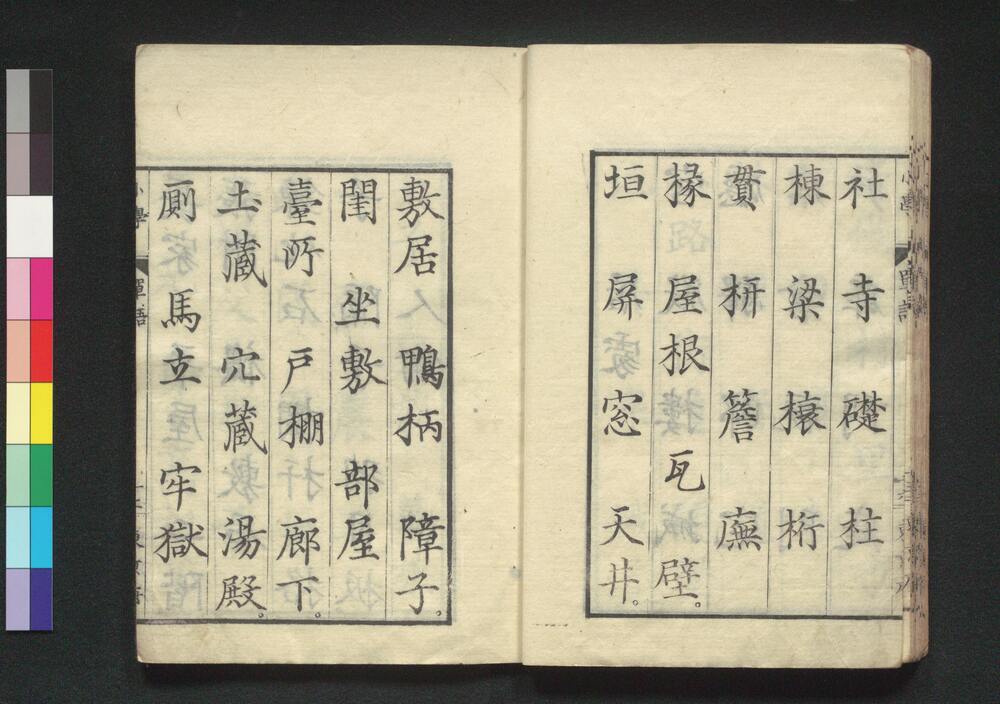 社 寺 礎 柱
棟 梁 榱 桁
貫 枅 簷 廡
椽 屋根 瓦 壁。
垣 屏 窓 天井。
敷居 鴨柄 障子。
閨 坐敷 部屋
臺所 戸棚 廊下。
土藏 穴藏 湯殿。
厠 馬立 牢獄